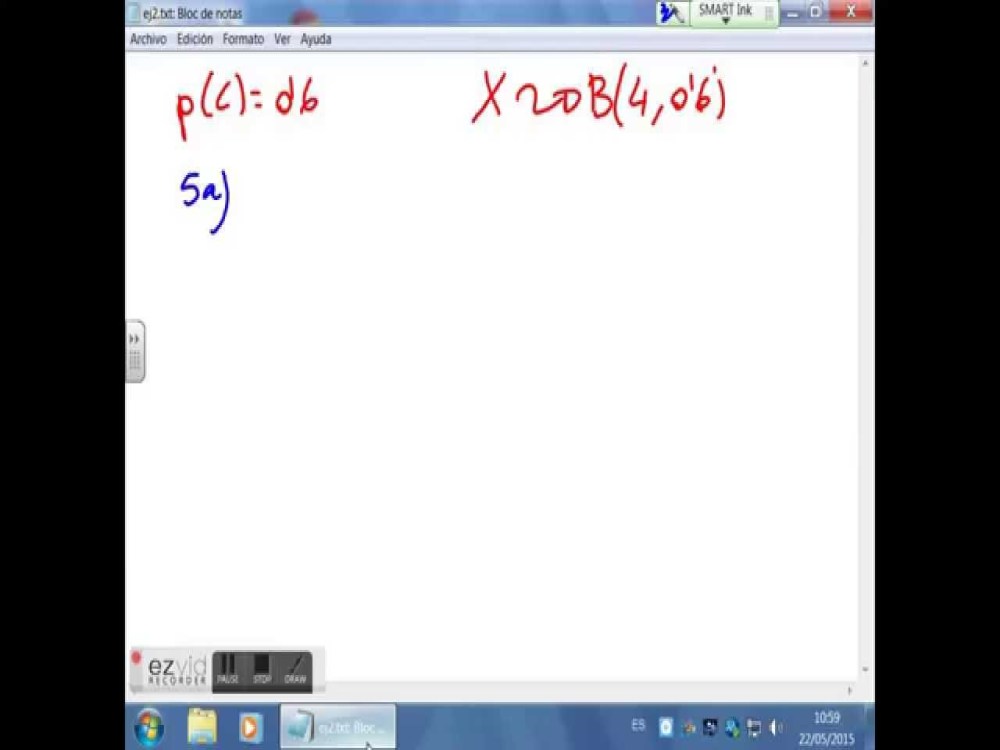 ej2.txt: Bloc de notas
SMART Ink
Archivo Edición Formato Ver Ayuda
p(C) = 0'6 X ~> B(4, 0'6)
5a)
ezvid
RECORDER
PAUSE STOP DRAW
ej2.txt: Bloc...
ES
10:59
22/05/2015